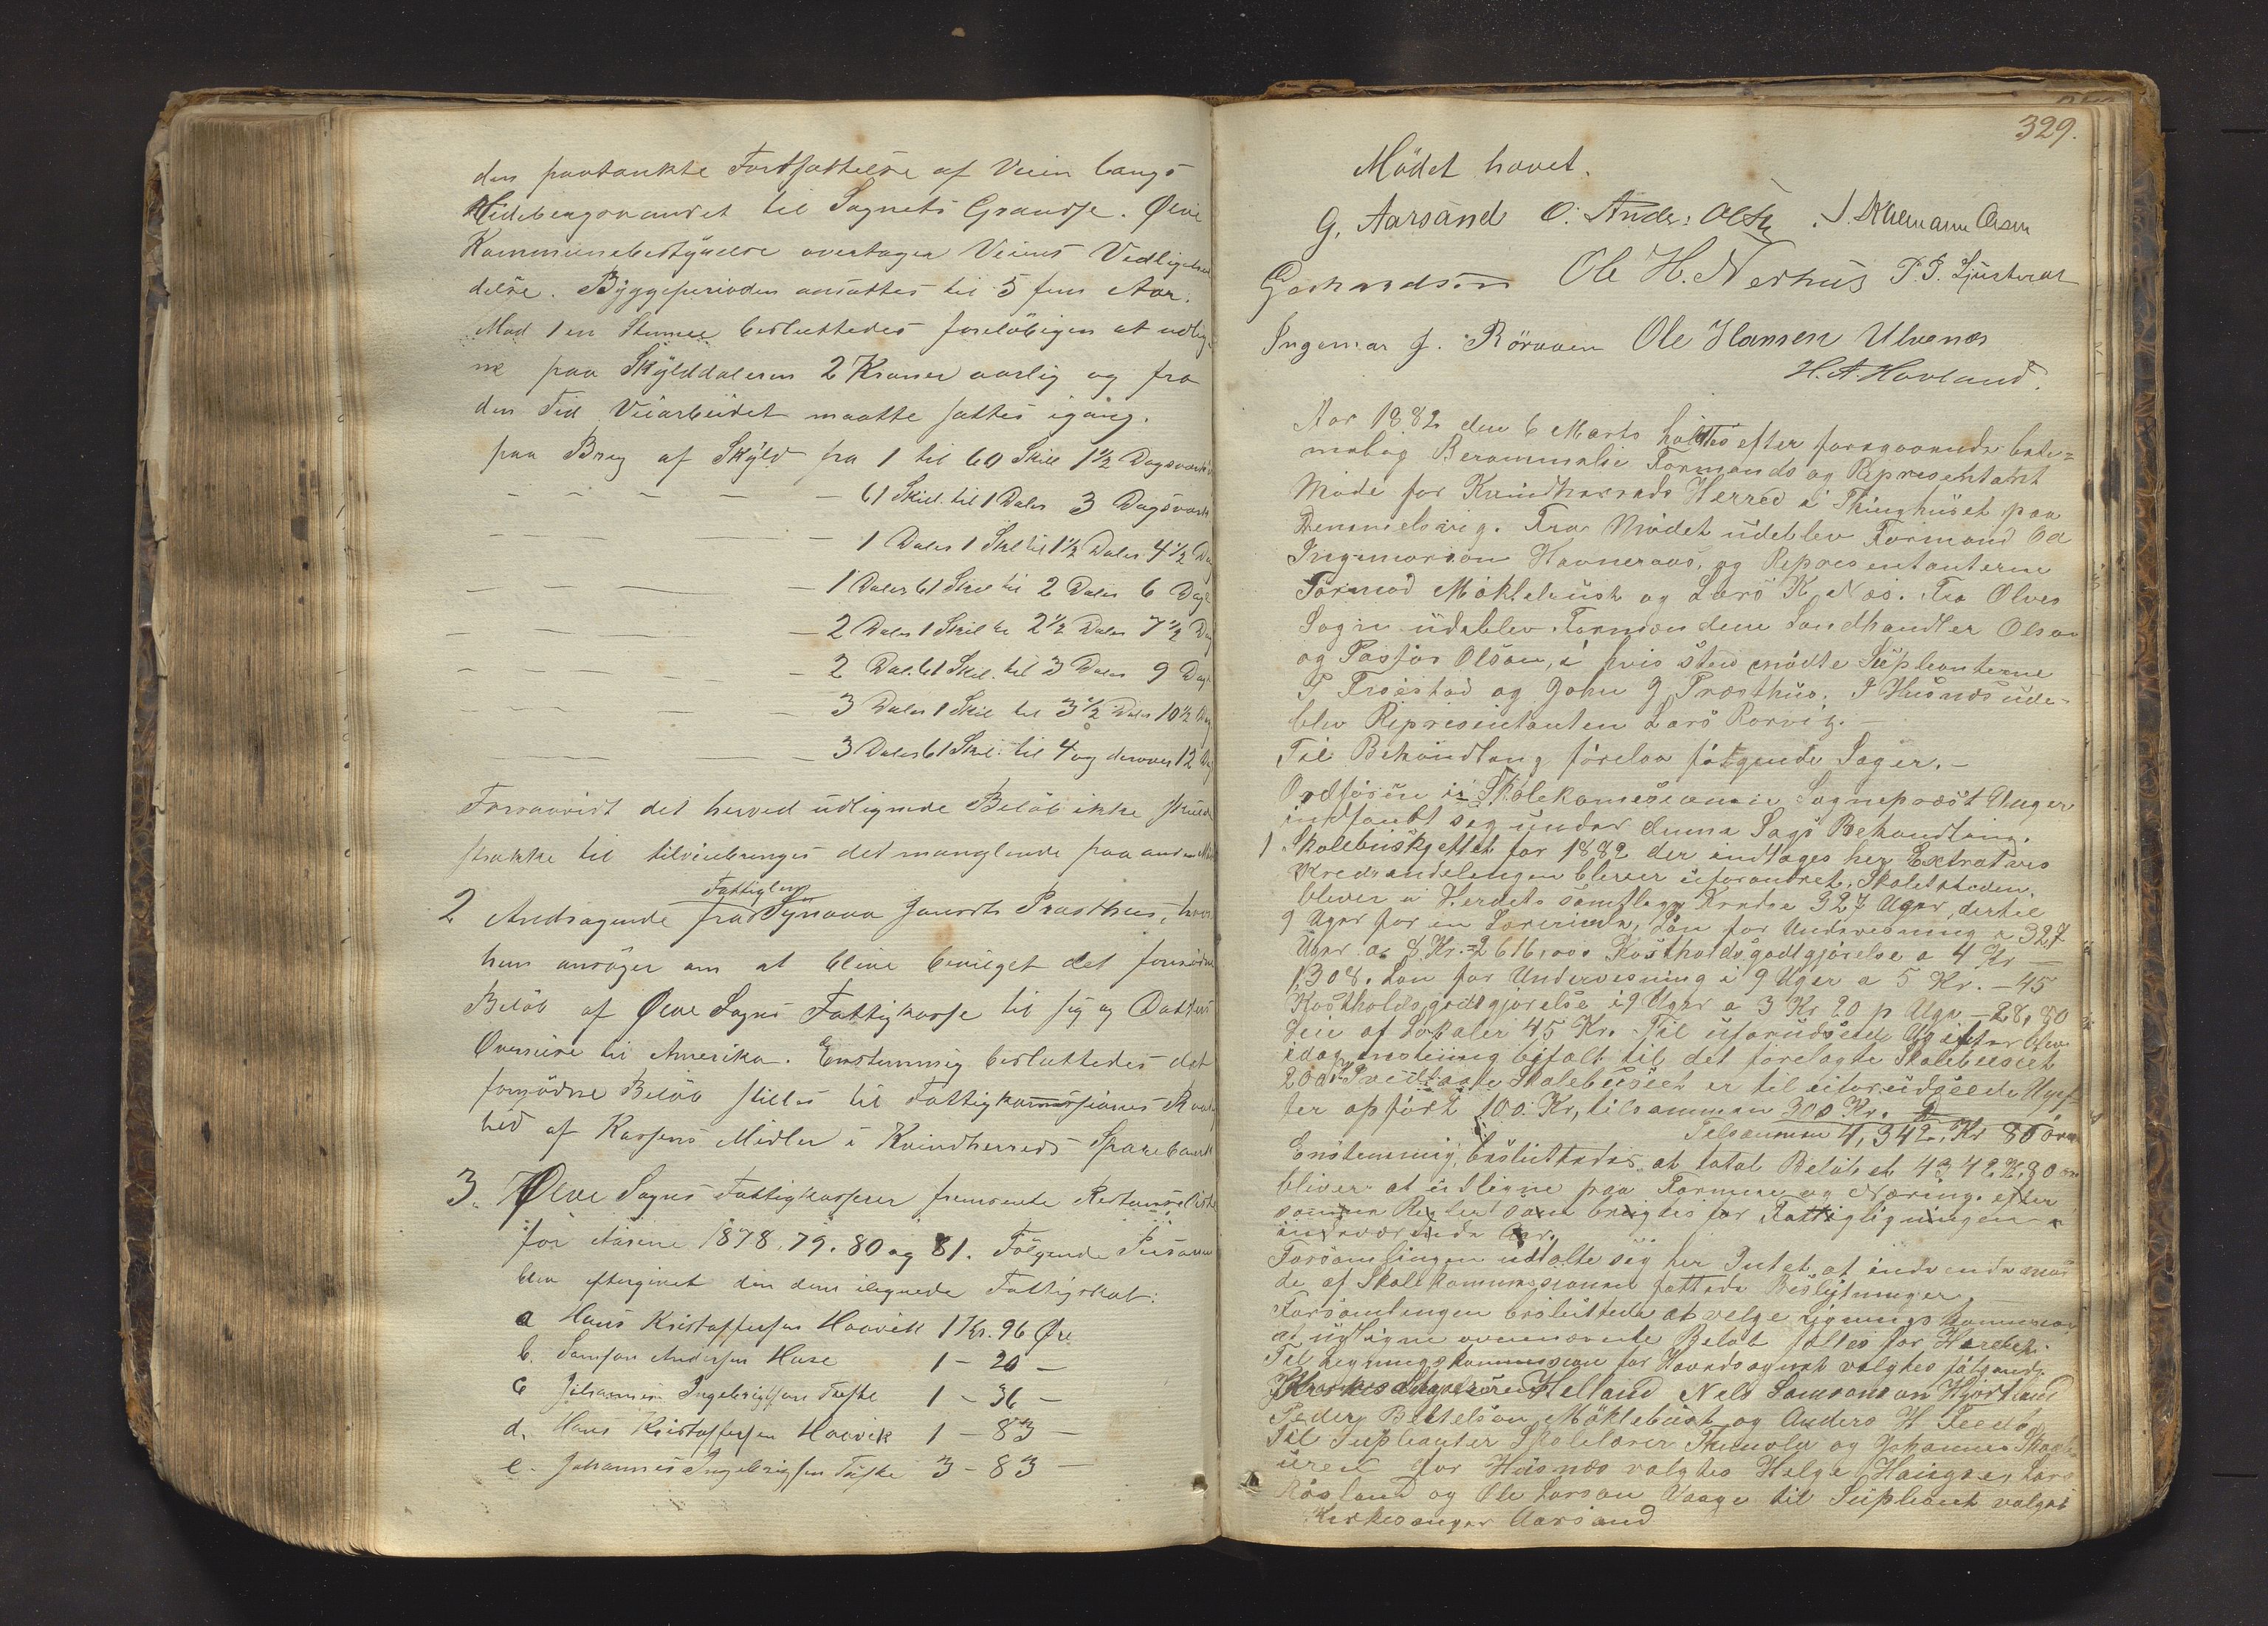 den paatænkte Fortsættelse af Veien langs
Hidebergsvandet til Sognets Grændse. Ølve
Kommunebestyrelse overtager Veiens Vedligehol
delse. Byggeperioden ansættes til 5 fem Aar.
Mod 1 en Stemme besluttedes foreløbigen at udlig
ne paa Skylddaleren 2 Kroner aarlig og fra
den Tid Veiarbeidet maatte sættes igang.
paa Brug af Skyld fra 1 til 60 Skill 1 1/2 Dagsværk
— — — — — 61 Skil. til 1 Daler 3 Dagsværk
— — — — — 1 Daler 1 Skil til 1 1/2 Daler 4 1/2 Dag
— — — — — 1 Daler 61 Skil til 2 Daler 6 Dags
— — — — — 2 Daler 1 Skil til 2 1/2 Daler 7 1/2 Dag
— — — — — 2 Dal. 61 Skil. til 3 Daler 9 Dags
— — — — — 3 Daler 1 Skil til 3 1/2 Daler 10 1/2 Dag
— — — — — 3 Daler 61 Skil. til 4 og derover 12 Dag
Forsaavidt det herved udlignede Beløb ikke skulde
strække til tilveiebringes det manglende paa anden Maade
Fattiglem
2 Andragende fra Synneva Jensdt. Præsthus, hvori
hun ansøger om at blive bevilget det fornødne
Beløb af Ølve Sogns Fattigkasse til sig og Datters
Overreise til Amerika. Enstemmig besluttedes det
fornødne Beløb stilles til Fattigkommissionens Raa
hed af Kassens Midler i Kvindherreds Sparebank
3. Ølve Sogns Fattigkasserer fremsente Restanseliste
for Aarene 1878. 79. 80 og 81. Følgende Personer
blev eftergivet den dem ilignede Fattigskat:
a Hans Kristoffersen Haavik 1 Kr. 96 Øre
b. Samson Andersen Huse 1 - 20 —
c Johannes Ingebrigtsen Tufte 1 - 36 —
d. Hans Kristoffersen Haavik 1 - 83 —
e. Johannes Ingebrigtsen Tufte 3 - 83 —
329.
Mødet hævet.
G. Aarsand O. Ander: Olsen J. Olsen
Gerhardsen Ole H. Nerhus
Ingemar J. Rørvaen Ole Hansen Ulvenæs
H. A. Havland.
Aar 1882 den 6 Marts holdtes efter foregaaende bete=
melig Berammelse Formands og Representant
Møde for Kvindherreds Herred i Thinghuset paa
Demmelsvig. Fra Mødet udeblev Formand Od
Ingemarson Havneraas, og Representanterne
Tormod Møklebust og Lars K. Næs. Fra Ølves
Sogn udeblev Formændene Landhandler Olsen
og Pastor Olsen, i hvis sted mødte Supleanterne
P. Frøistad og John J. Præsthus. I Husnæs ude-
blev Representanten Lars Rørvig. —
Til Behandlang forelaa følgende Sager. —
Ordføren i Skolekomesionen Sogneprest Unger
indfandt seg under denne Sags Behandling.
1 Skolebudsjettet for 1882 der indtages her Extratvis
Kredsindelingen bliver uforandret, Skoletsteden.
bliver i Herdets samtlige Kredse 327 Uger, dertil
9 Uger for en Lærerinde, Løn for Undervisning a 327
Uger a 8 Kr. = 2616,00. Kostholdsgodtgjørelse a 4 Kr —
1308. Løn for Undervisning i 9 Uger a 5 Kr. — 45
Kostholdsgodtgjørelse i 9 Uger a 3 Kr 20 p Uge — 28,80
Leie af Lokaler 45 Kr. Til uforudseede Udgifter blev
idag enstemig bifalt til det forelagte Skolebudsiet
200 Kr. Skolebudsiet er til uforudseede Ugif=
ter opført 100 Kr, tilsammen 300 Kr.
Tilsammen 4,342, Kr 80 øre
Enstemmig besluttedes at total Beløbet 4342 Kr, 80 øre
bliver at udligne paa Formue og Næring. efter
samme Regler som brugtes for Fattigligningen i
indeværende Aar.
Forsamlingen udtalte sig her Intet at indvende mod
de af Skolekommissionen fattede Beslutninger.
Forsamlingen besluttede at velge Lignings kommision
at ugligne ovennævnte Beløb felles for Herredet.
Til Ligningskommision for Hovedsognet valgtes følgende
Helland Nels Samsonson Hjortland
Peder Bottelson Møklebust og Anders H. Feed
Til Supleanter Skolelærer Themola og Johannes Skaale
uren for Husnæs valgtes Helge Hauge, Lars
Røsland og Ole Larsen Vaage til Supleant valgtes
Kirkesanger Aarsand